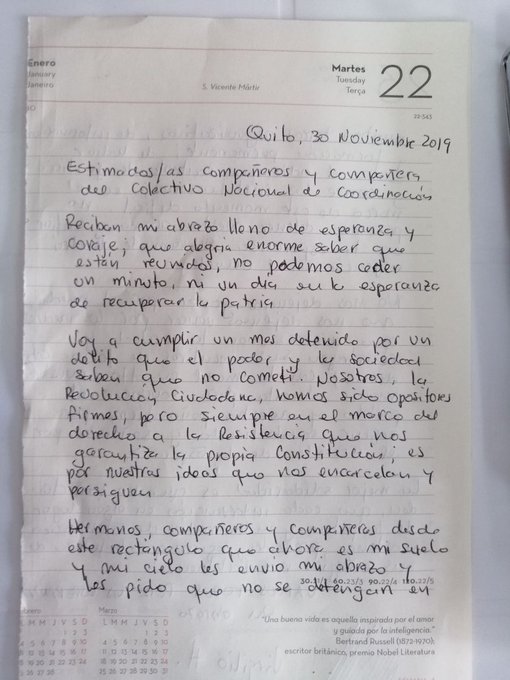 Enero
January
Janeiro
S. Vicente Mártir
Martes
Tuesday
Terça
22
22-343
Quito, 30 Noviembre 2019
Estimados/as compañeros y compañera
del Colectivo Nacional de Coordinación
Reciban mi abrazo lleno de esperanza y
coraje, que alegria enorme saber que
están reunidos, no podemos ceder
un minuto, ni un día en la esperanza
de recuperar la patria
Voy a cumplir un mes detenido por un
delito que el poder y la sociedad
saben que no cometí. Nosotros, la
Revolución Ciudadana, hemos sido opositores
firmes, pero siempre en el marco del
derecho a la Resistencia que nos
garantiza la propia Constitución; es
por nuestras ideas que nos encarcelan y
persiguen
Hermanos, compañeros y compañeras desde
este rectángulo que ahora es mi suelo
y mi cielo les envio mi abrazo y
les pido que no se detengan en
60.23/3 90.22/4 120.22/5
Febrero
L M M J V S D
1 2 3
4 5 6 7 8 9 10
11 12 13 14 15 16 17
18 19 20 21 22 23 24
25 26 27 28
Marzo
L M M J V S D
1 2 3
4 5 6 7 8 9 10
11 12 13 14 15 16 17
18 19 20 21 22 23 24
25 26 27 28 29 30 31
"Una buena vida es aquella inspirada por el amor
y guiada por la inteligencia."
Bertrand Russell (1872-1970);
escritor británico, premio Nobel Literatura